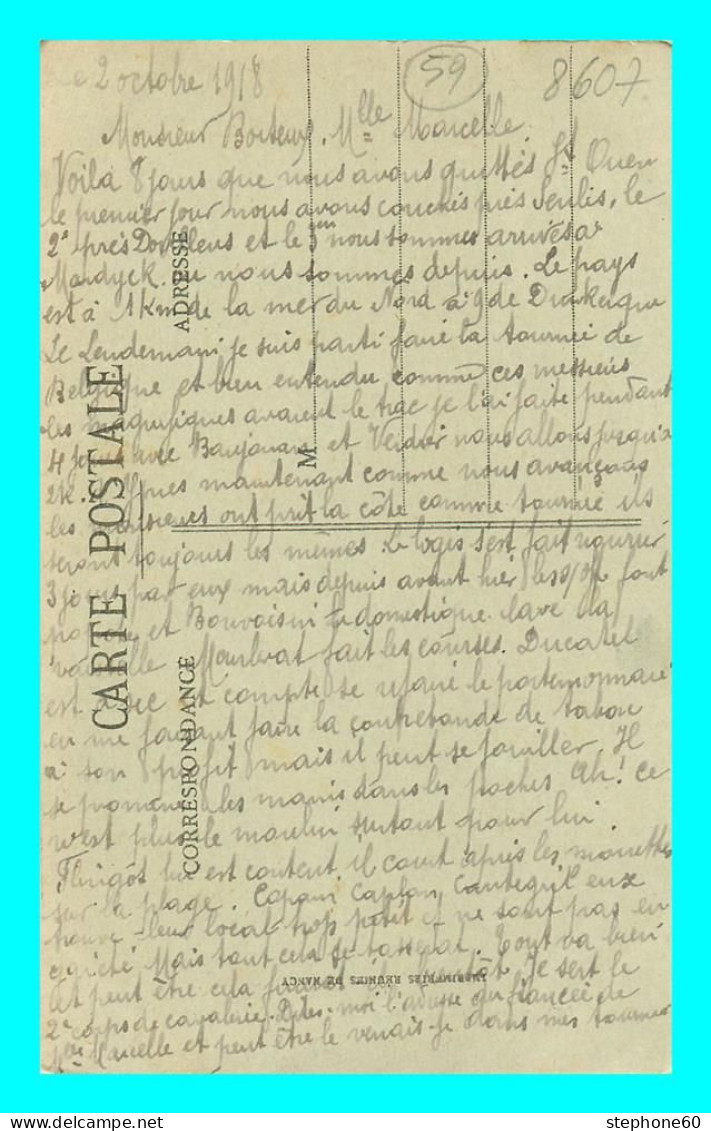 Le 2 octobre 1918
59
8607
Monsieur Melle Marcelle.
Voila 8 jours que nous avons quittés St Ouen
le premier jour nous avons couchés près Senlis, le
2e près Doullens et le 3em nous sommes arrivés a
Mardyck. ou nous sommes depuis. Le pays
est à 1 Km de la mer du Nord a 9 de Dunkerque
Le Lendemain je suis parti faire la tournée de
Belgique et bien entendu comme ces messieurs
les magnifiques avaient le trac je l'ai faite pendant
4 jours avec et Verdier nous allons jusqu'a
2k. maintenant comme nous avançons
les messieurs ont prit la côte comme tournée ils
seront toujours les mêmes. Le logis s'est fait nourrir
3 jours par eux mais depuis avant hier les s/off font
popote et domestique. lave la
vaisselle fait les courses. Ducatel
est avec et compte se refaire le portemonnaie
en me faisant faire la contrebande de tabac
a son profit mais il peut se fouiller. Il
se promène les mains dans les poches Ah! ce
n'est plus le moulin surtout pour lui
Flingot lui est content il court après les mouettes
sur la plage. Copain Caplan eux
trouve leur local trop petit et ne sont pas en
Mais tout cela se tassera. Tout va bien
et peut être cela Je sert le
2e corps de cavalerie. Dites-moi l'adresse du fiancée de
Melle Marcelle et peut être le verrais-je dans mes tournées
CARTE POSTALE
CORRESPONDANCE
ADRESSE
M
IMPRIMERIES RÉUNIES DE NANCY
stephone60